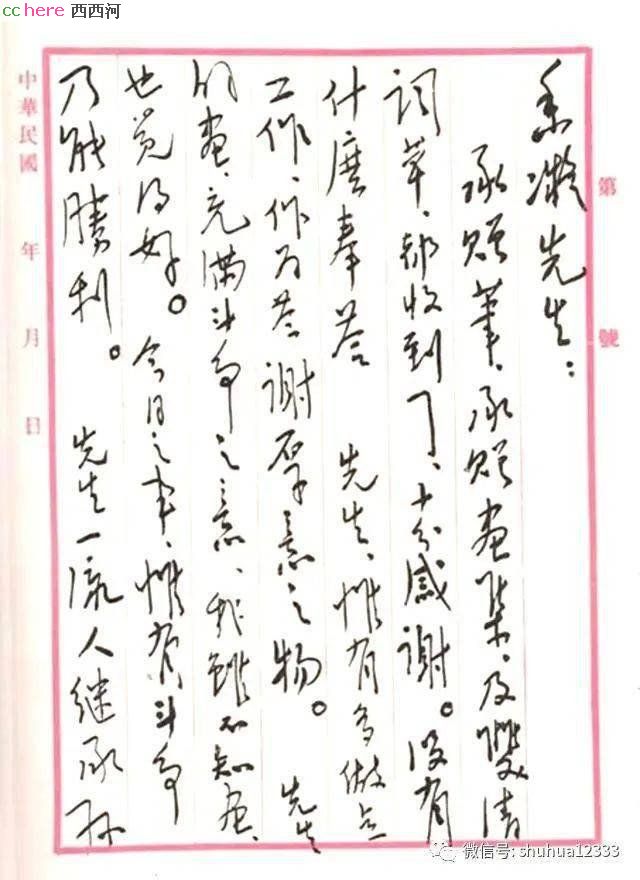 cchere 西西河
第 號
香凝先生：
承赠筆、承赠画集、及雙清
词草、都收到了、十分感谢。没有
什麽奉答 先生、惟有多做点
工作、作为答谢厚意之物。 先生
的画、充满斗争之意、我雖不知画、
也觉得好。 今日之事、惟有斗争
乃能勝利。 先生一流人继承孙
中華民國 年 月 日
微信号: shuhua12333